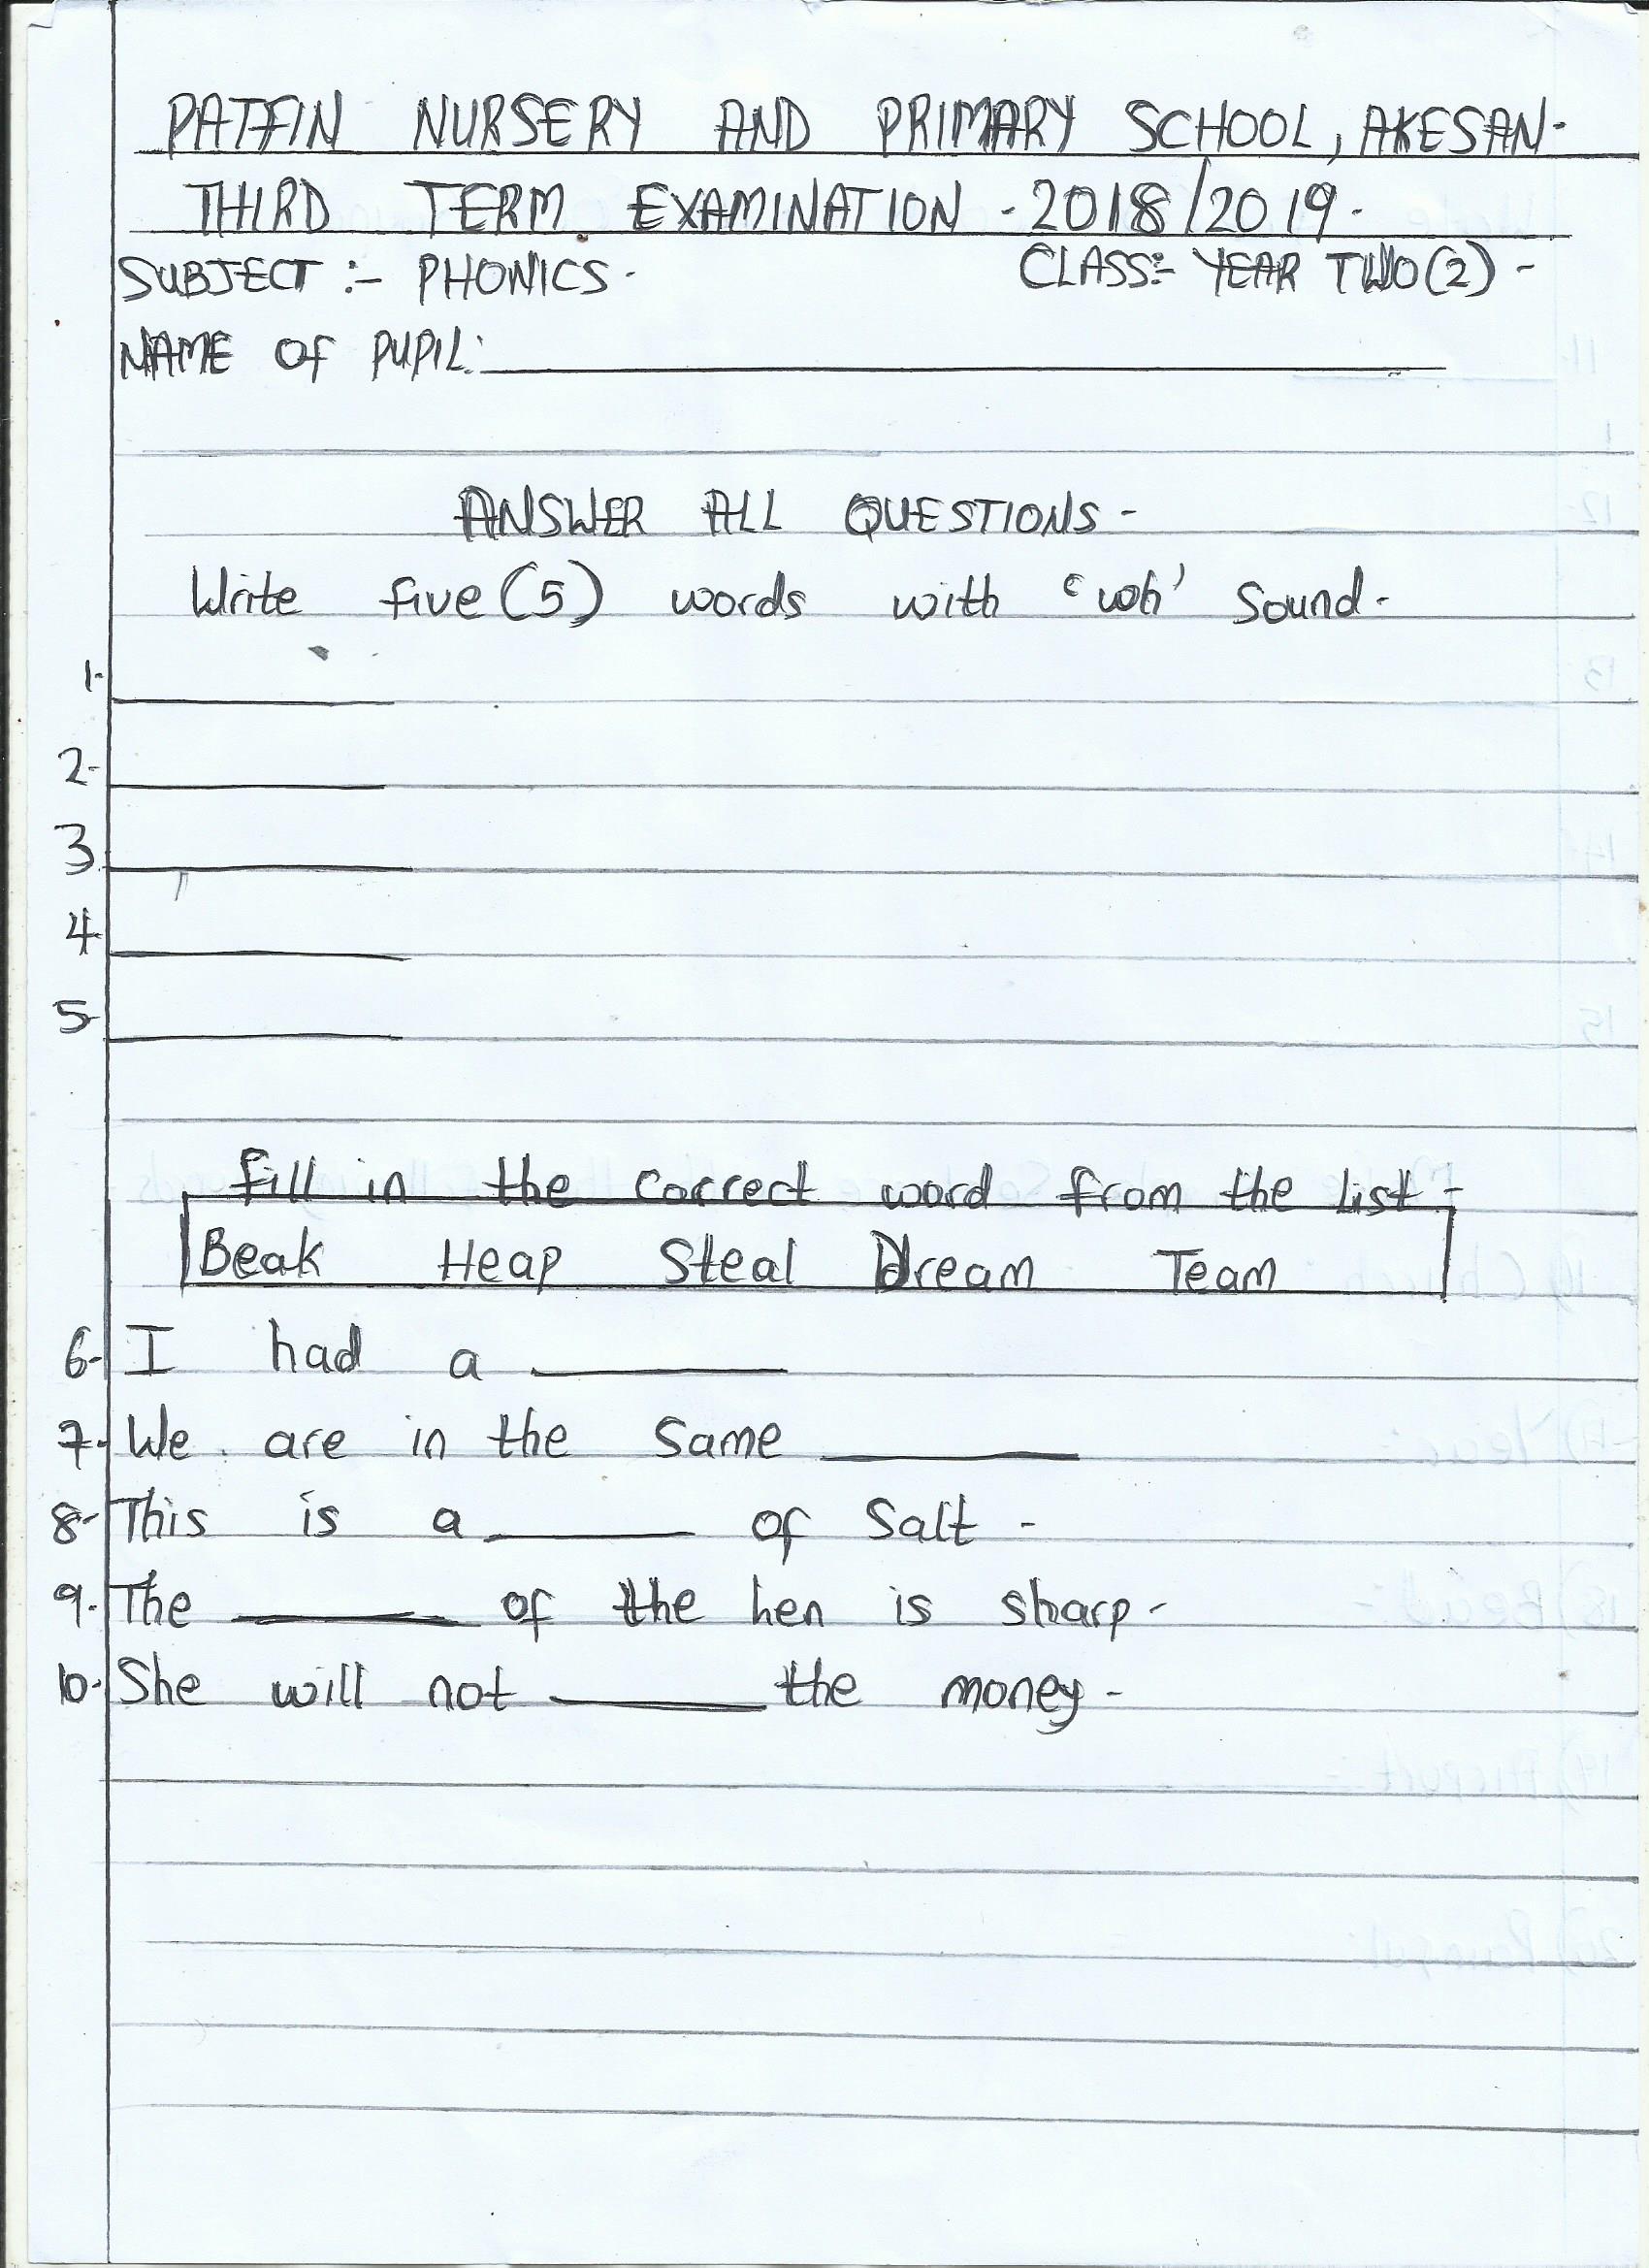 PATFIN NURSERY AND PRIMARY SCHOOL, AKESAN.
THIRD TERM EXAMINATION - 2018/2019.
SUBJECT :- PHONICS. CLASS:- YEAR TWO (2) -
NAME OF PUPIL: ____________
ANSWER ALL QUESTIONS -
Write five (5) words with 'wh' Sound.
1. ____________
2. ____________
3. ____________
4. ____________
5. ____________
Fill in the correct word from the list -
Beak Heap Steal Dream Team
6. I had a ____________
7. We are in the Same ____________
8. This is a ____________ of Salt -
9. The ____________ of the hen is sharp -
10. She will not ____________ the money -